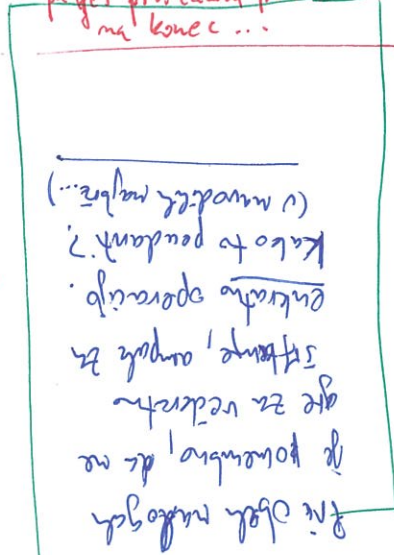 na konec...
Pri obeh nalogah
je pomembno, da ne
gre za večkratno
štetje, ampak za
enkratno operacijo.
Kako to poudariti?
(v navodilih najbrž...)